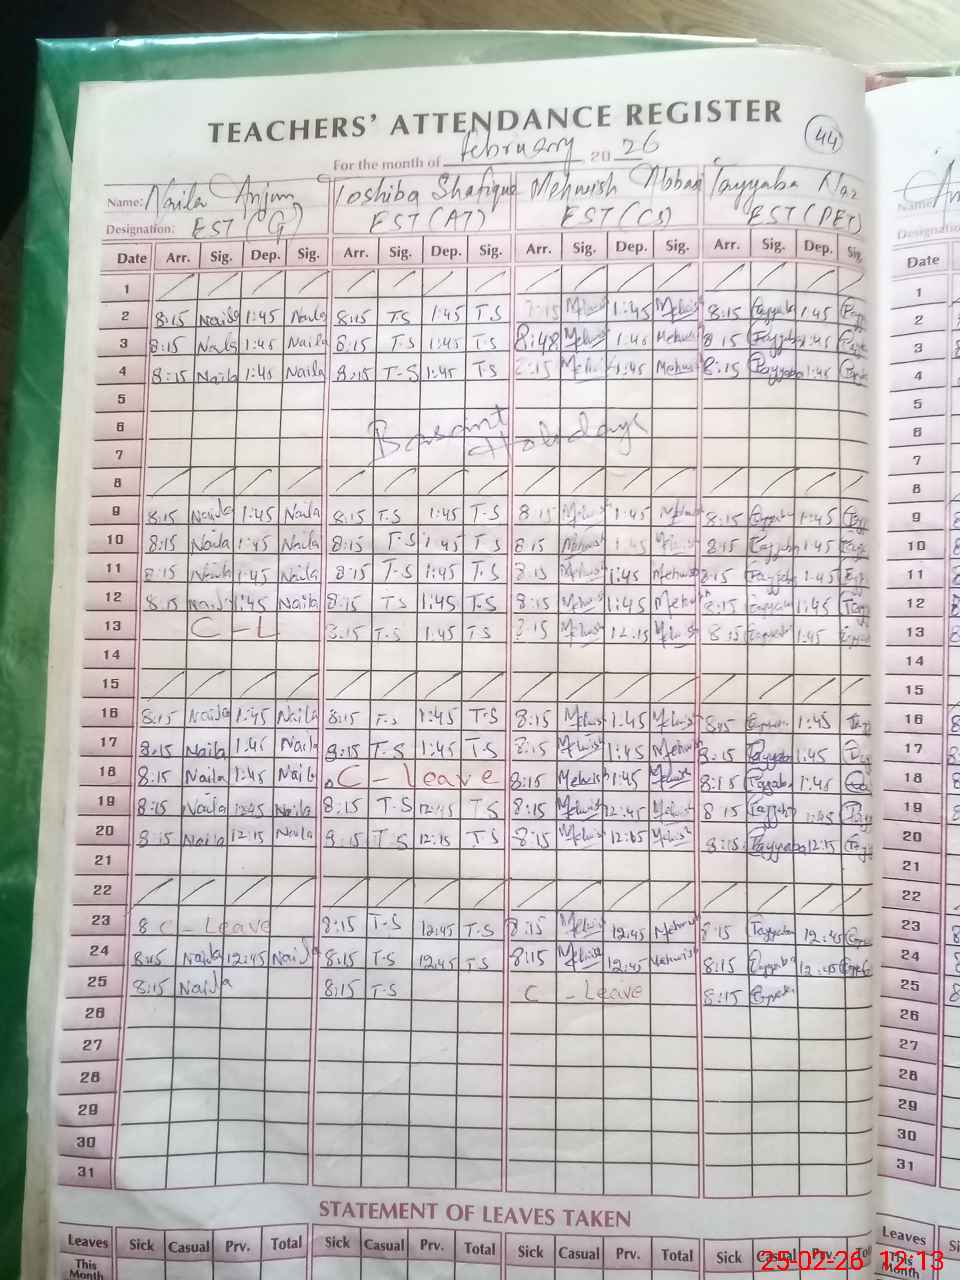 TEACHERS' ATTENDANCE REGISTER
44
For the month of february 2026
Name: Naila Anjum Toshiba Shafique Mehwish Abbas Tayyaba Naz
Name:
Designation: EST (G) EST (AT) EST (CS) EST (PET)
Date Arr. Sig. Dep. Sig. Arr. Sig. Dep. Sig. Arr. Sig. Dep. Sig. Arr. Sig. Dep. Sig.
Date
1 1
2 8:15 Naila 1:45 Naila 8:15 T.S 1:45 T.S Mehwish 1:45 Mehwish 8:15 Tayyaba 1:45 2
3 8:15 Naila 1:45 Naila 8:15 T.S 1:45 T.S 8:48 Mehwish 1:45 Mehwish 8:15 Tayyaba 1:45 3
4 8:15 Naila 1:45 Naila 8:15 T-S 1:45 T.S 8:15 1:45 Mehwish 8:15 Tayyaba 1:45 4
5 5
6 Basant Holidays 6
7 7
8 8
9 8:15 Naila 1:45 Naila 8:15 T.S 1:45 T-S 8:15 Mehwish 1:45 8:15 1:45 9
10 8:15 Naila 1:45 Naila 8:15 T-S 1:45 T-S 8:15 Mehwish 1:45 8:15 Tayyaba 1:45 10
11 8:15 Naila 1:45 Naila 8:15 T-S 1:45 T-S 8:15 Mehwish 1:45 Mehwish 8:15 Tayyaba 1:45 11
12 8:15 Naila 1:45 Naila 8:15 T.S 1:45 T.S 8:15 Mehwish 1:45 Mehwish 8:15 1:45 12
13 C-L 8:15 T-S 1:45 T.S 8:15 Mehwish 12:15 Mehwish 8:15 1:45 13
14 14
15 15
16 8:15 Naila 1:45 Naila 8:15 T-S 1:45 T-S 8:15 Mehwish 1:45 Mehwish 8:15 1:45 16
17 8:15 Naila 1:45 Naila 8:15 T-S 1:45 T-S 8:15 Mehwish 1:45 Mehwish 8:15 Tayyaba 1:45 17
18 8:15 Naila 1:45 Naila C-Leave 8:15 Mehwish 1:45 Mehwish 8:15 Tayyaba 1:45 18
19 8:15 Naila 12:45 Naila 8:15 T-S 12:45 T.S 8:15 Mehwish 12:45 Mehwish 8:15 Tayyaba 19
20 8:15 Naila 12:15 Naila 8:15 T-S 12:15 T.S 8:15 Mehwish Mehwish 8:15 Tayyaba 12:15 20
21 21
22 22
23 8 C-Leave 8:15 T-S 12:45 T-S 8:15 Mehwish 12:45 Mehwish 8:15 Tayyaba 12:45 23
24 Naila 12:45 Naila 8:15 T-S 12:45 T.S 8:15 Mehwish 12:45 Mehwish 8:15 Tayyaba 12:45 24
25 8:15 Naila 8:15 T-S C-Leave 8:15 25
26 26
27 27
28 28
29 29
30 30
31 31
STATEMENT OF LEAVES TAKEN
Leaves Sick Casual Prv. Total Sick Casual Prv. Total Sick Casual Prv. Total Sick Casual Prv. Total
Leaves
This Month
This Month
25-02-26 12:13